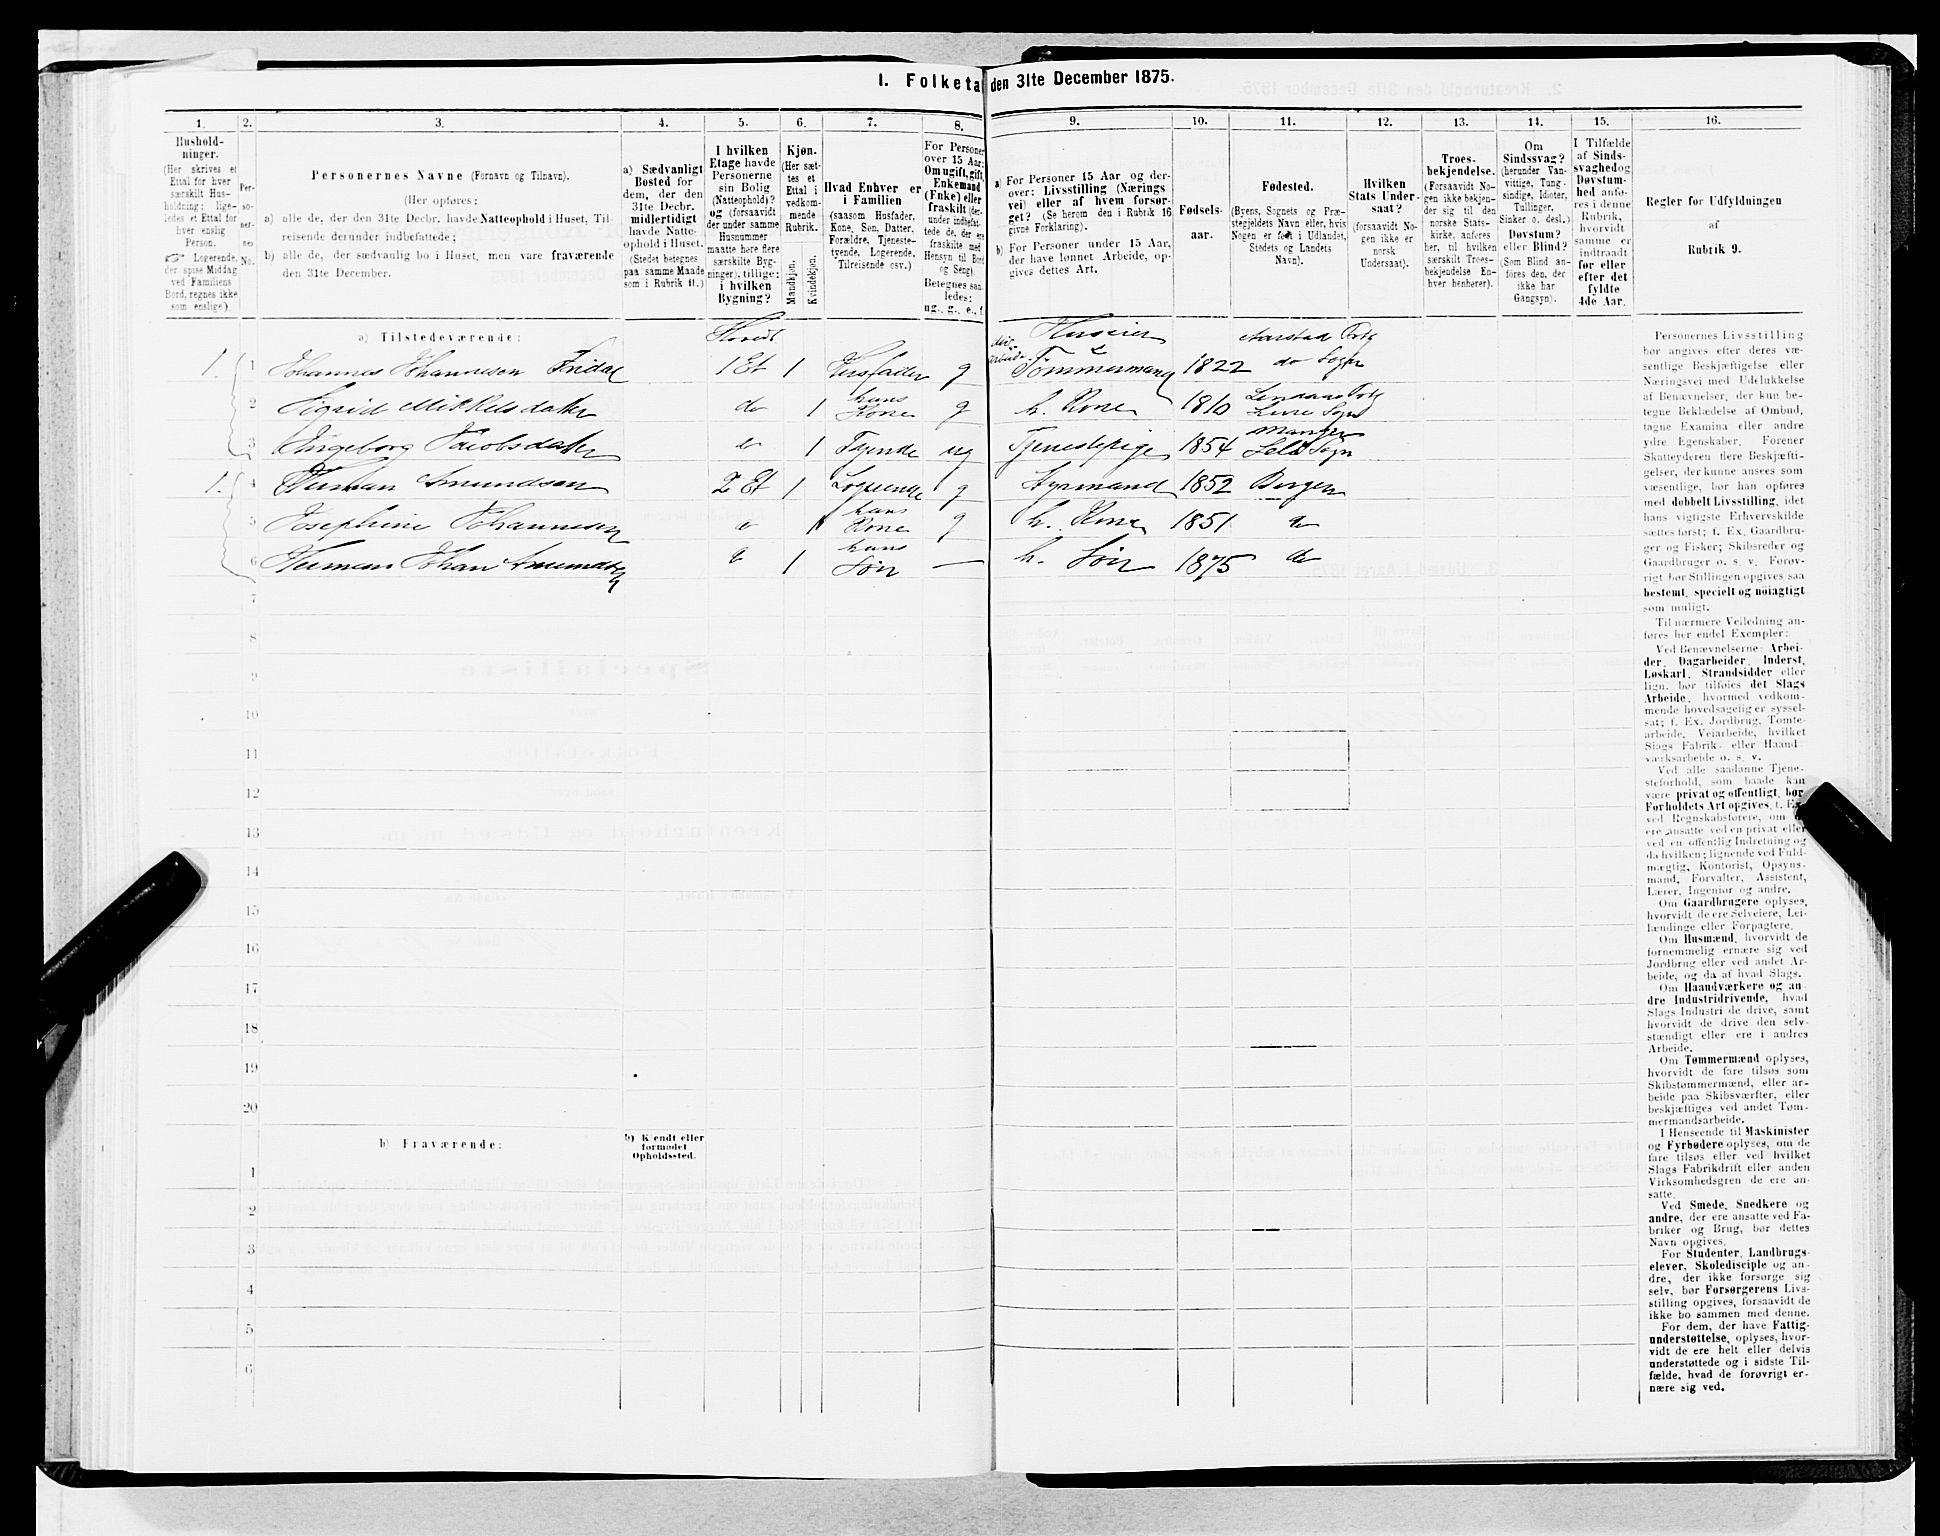 1. Folketæ
den 31te December 1875.
1.
2.
3.
4.
5.
6.
7.
8.
9.
10.
11.
12.
13.
14.
15.
16.
Hushold-
ninger.
(Her skrives et
Ettal for hver
særskilt Hus-
holdning; lige-
ledes et Ettal for
hver enslig
Person.
Logerende,
der spise Middag
ved Familiens
Bord, regnes ikke
som enslige).
Per-
so-
ner-
nes
No.
Personernes Navne (Fornavn og Tilnavn).
(Her opføres:
a) alle de, der den 31te Decbr. havde Natteophold i Huset, Til-
reisende derunder indbefattede;
b) alle de, der sædvanlig bo i Huset, men vare fraværende
den 31te December.
a) Sædvanligt
Bosted for
dem, der den
31te Decbr.
midlertidigt
havde Natte-
ophold i Huset.
(Stedet betegnes
paa samme Maade
som i Rubrik 11.)
I hvilken
Etage havde
Personerne
sin Bolig
(Natteophold)?
og (forsaavidt
der under samme
Husnummer
maatte høre flere
særskilte Byg-
ninger), tillige:
i hvilken
Bygning?
Kjøn.
(Her sæt-
tes et
Ettal i
vedkom-
mende
Rubrik.
Mandkjøn.
Kvindekjøn.
Hvad Enhver er
i Familien
(saasom Husfader,
Kone, Søn, Datter,
Forældre, Tjeneste-
tyende, Logerende,
Tilreisende osv.)
For Personer
over 15 Aar:
Om ugift, gift,
Enkemand
(Enke) eller
fraskilt (der-
under indbefat-
tede de, der ere
fraskilte med
Hensyn til Bord
og Seng).
Betegnes saa-
ledes:
ug., g., e., f.
a) For Personer 15 Aar og der-
over: Livsstilling (Nærings
vei) eller af hvem forsør-
get? (Se herom den i Rubrik 16
givne Forklaring).
b) For Personer under 15 Aar,
der have lønnet Arbeide, op-
gives dettes Art.
Fødsels-
aar.
Fødested.
(Byens, Sognets og Præ-
stegjeldets Navn eller, hvis
Nogen er født i Udlandet,
Stedets og Landets
Navn).
Hvilken
Stats Under-
saat?
(forsaavidt No-
gen ikke er
norsk
Undersaat).
Troes-
bekjendelse.
(Forsaavidt No-
gen ikke bekjen-
der sig til den
norske Stats-
kirke, anføres
her, til hvilken
særskilt Troes-
bekjendelse En-
hver henhører).
Om
Sindssvag?
(herunder Van-
vittige, Tung-
sindige, Idioter,
Tullinger,
Sinker o. desl.)
Døvstum?
eller Blind?
(Som Blind an-
føres den, der
ikke har
Gangsyn).
I Tilfælde
af Sinds-
svaghed og
Døvstum-
hed anfø-
res i denne
Rubrik,
hvorvidt
samme er
indtraadt
før eller
efter det
fyldte
4de Aar.
Regler for Udfyldningen
af
Rubrik 9.
a) Tilstedeværende:
Huseier
1. 1 Johannes Johannesen 1 Et 1 Husfader g Tømmermand 1822 do Sogn
2 Sigrid Mikkelsdatter do 1 hans Kone g h. Kone 1810
3 Ingeborg Jacobsdatter do 1 Tyende ug Tjenestepige 1854
1. 4 Herman Amundsen 2 Et 1 Logerende g Styrmand 1852 Bergen
5 Josephine Johannesen do 1 hans Kone g h. Kone 1851 do
6 Herman Johan Amundsen do 1 hans Søn — h. Søn 1875 do
7
8
9
10
11
12
13
14
15
16
17
18
19
20
b) Fraværende:
b) Kjendt eller
formodet
Opholdssted.
1
2
3
4
5
6
Personernes Livsstilling
bør angives efter deres væ-
sentlige Beskjæftigelse eller
Næringsvei med Udelukkelse
af Benævnelser, der kun be-
tegne Beklædelse af Ombud,
tagne Examina eller andre
ydre Egenskaber. Forener
Skatteyderen flere Beskjæfti-
gelser, der kunne ansees som
væsentlige, bør han opføres
med dobbelt Livsstilling, idet
hans vigtigste Erhvervskilde
sættes først; f. Ex. Gaardbru-
ger og Fisker; Skibsreder og
Gaardbruger o. s. v. Forøv-
rigt bør Stillingen opgives saa
bestemt, specielt og nöiagtigt
som muligt.
Til nærmere Veiledning an-
føres her endel Exempler:
Ved Benævnelserne: Arbei-
der, Dagarbeider, Inderst,
Løskarl, Strandsidder eller
lign. bør tilføies det Slags
Arbeide, hvormed vedkom-
mende hovedsagelig er syssel-
sat; f. Ex. Jordbrug, Tomte-
arbeide, Veiarbeide, hvilket
Slags Fabrik- eller Haand-
værksarbeide o. s. v.
Ved alle saadanne Tjene-
steforhold, som baade kan
være privat og offentligt, bør
Forholdets Art opgives, f. Ex.
ved Regnskabsførere, om de
ere ansatte ved en privat eller
ved en offentlig Indretning og
da hvilken; lignende ved Fuld-
mægtig, Kontorist, Opsyns-
mand, Forvalter, Assistent,
Lærer, Ingeniør og andre.
Om Gaardbrugere oplyses,
hvorvidt de ere Selveiere, Lei-
lændinge eller Forpagtere.
Om Husmænd, hvorvidt de
fornemmelig ernære sig ved
Jordbrug eller ved andet Ar-
beide, og da af hvad Slags.
Om Haandværkere og an-
dre Industridrivende, hvad
Slags Industri de drive, samt
hvorvidt de drive den selv-
stændigt eller ere i andres
Arbeide.
Om Tømmermænd oplyses,
hvorvidt de fare tilsøs som
Skibstømmermænd, eller ar-
beide paa Skibsværfter, eller
beskjæftiges ved andet Tøm-
mermandsarbeide.
I Henseende til Maskinister
og Fyrbødere oplyses, om de
fare tilsøs eller ved hvilket
Slags Fabrikdrift eller anden
Virksomhedsgren de ere an-
satte.
Ved Smede, Snedkere og
andre, der ere ansatte ved Fa-
briker og Brug, bør dettes
Navn opgives.
For Studenter, Landbrugs-
elever, Skoledisciple og an-
dre, der ikke forsørge sig
selv, bør Forsørgerens Livs-
stilling opgives, forsaavidt de
ikke bo sammen med denne.
For dem, der have Fattig-
understøttelse, oplyses, hvor-
vidt de ere helt eller delvis
understøttede og i sidste Til-
fælde, hvad de forøvrigt er-
nære sig ved.